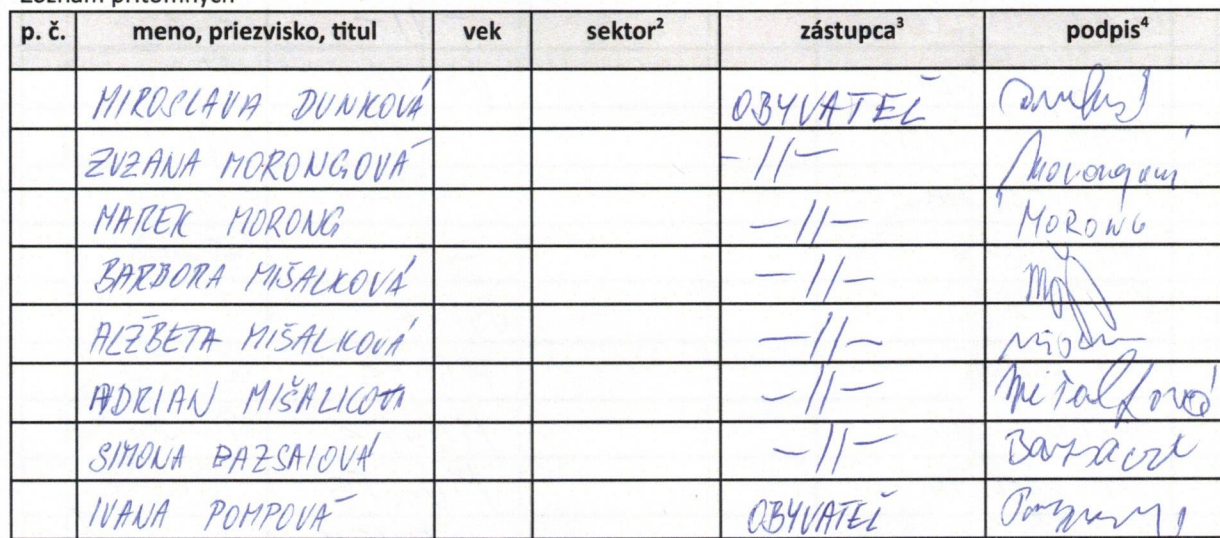 Zoznam prítomných
p. č. meno, priezvisko, titul vek sektor² zástupca³ podpis⁴
MIROSLAVA DUNKOVÁ OBYVATEĽ
ZUZANA MORONGOVÁ -//-
MAREK MORONG -//- MORONG
BARBORA MIŠALKOVÁ -//-
ALŽBETA MIŠALKOVÁ -//-
ADRIAN -//-
SIMONA -//-
IVANA POMPOVÁ OBYVATEĽ